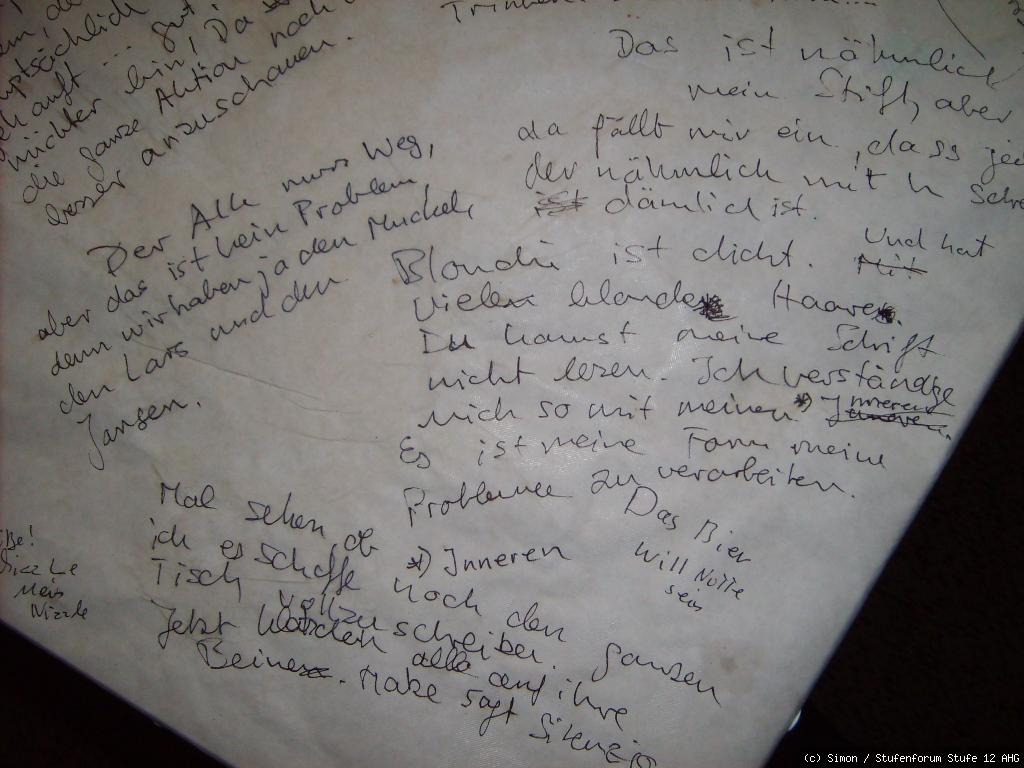 hauptsächlich
auft ... gut
nüchter bin! Da
die ganze Aktion noch
besser anzuschauen.
Das ist nähmlich
mein Stift, aber
da fällt mir ein, dass je
der nähmlich mit h schre
ist dämlich ist.
Der Alk muss Weg,
aber das ist kein Problem
denn wir haben ja den Muckel,
den Lars und den
Jansen.
Blondie ist dicht. Mit Und hat
Vielen blonde Haare.
Du kannst meine Schrift
nicht lesen. Ich verständge
mich so mit meinen *) Inneren.
Es ist meine Form meine
Probleme zu verarbeiten.
*) Inneren
Das Bier
will Notte
sein
Mal sehen ob
ich es schaffe noch den ganzen
Tisch vollzuschreiben.
Jetzt alle auf ihre
Beine. Make sagt Silenzio
Mein
Nizzle
(c) Simon / Stufenforum Stufe 12 AHG